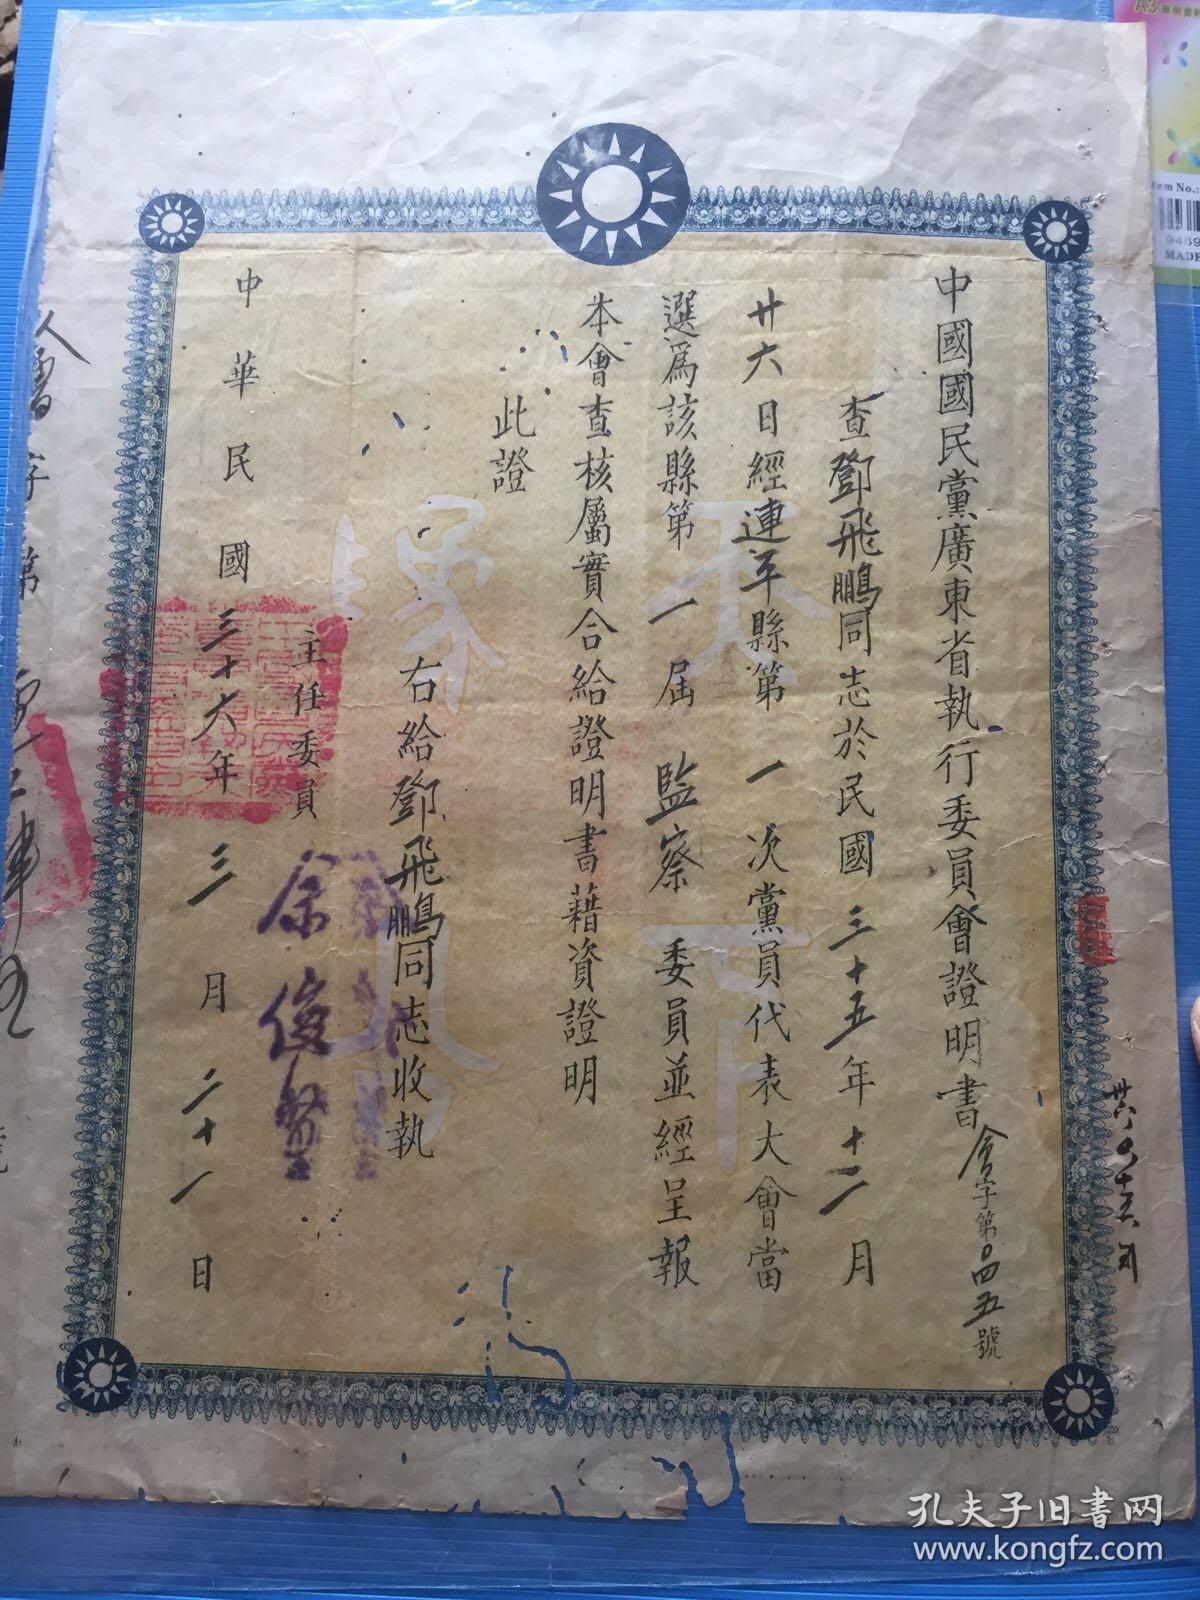 中國國民黨廣東省執行委員會證明書 會字第0四五號
查鄧飛鵬同志於民國三十五年十二月
廿六日經連平縣第一次黨員代表大會當
選為該縣第一屆監察委員並經呈報
本會查核屬實合給證明書藉資證明
此證
右給鄧飛鵬同志收執
主任委員
余俊賢
中華民國三十六年三月二十一日
天下為公
字第
孔夫子旧书网
www.kongfz.com
A3
Item No.:
MADE